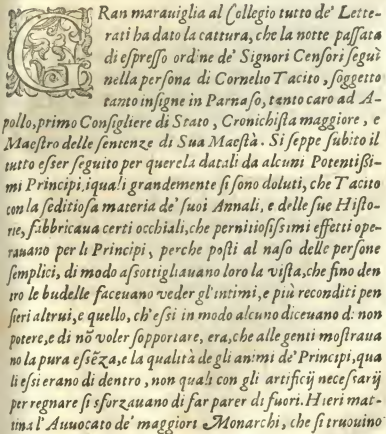 GRan marauiglia al Collegio tutto de' Lette-
rati ha dato la cattura, che la notte paſſata
di eſpreſſo ordine de' Signori Cenſori ſeguì
nella perſona di Cornelio Tacito, ſoggetto
tanto inſigne in Parnaſo, tanto caro ad A-
pollo, primo Conſigliere di Stato, Cronichiſta maggiore, e
Maeſtro delle ſentenze di Sua Maeſtà. Si ſeppe ſubito il
tutto eſſer ſeguito per querela datali da alcuni Potentiſſi-
mi Principi, iquali grandemente ſi ſono doluti, che Tacito
con la ſeditioſa materia de' ſuoi Annali, e delle ſue Hiſto-
rie, fabbricaua certi occhiali, che pernitioſiſsimi effetti ope-
rauano per li Principi, perche poſti al naſo delle perſone
ſemplici, di modo aſſottigliauano loro la viſta, che fino den
tro le budelle faceuano veder gl'intimi, e più reconditi pen
ſieri altrui, e quello, ch'eſsi in modo alcuno diceuano di non
potere, e di nõ voler ſopportare, era, che alle genti moſtraua
no la pura eſsẽza, e la qualità de gli animi de' Principi, qua
li eſsi erano di dentro, non quali con gli artificij neceſſarij
per regnare ſi sforzauano di far parer di fuori. Hieri mat-
tina l'Auuocato de' maggiori Monarchi, che ſi truouino